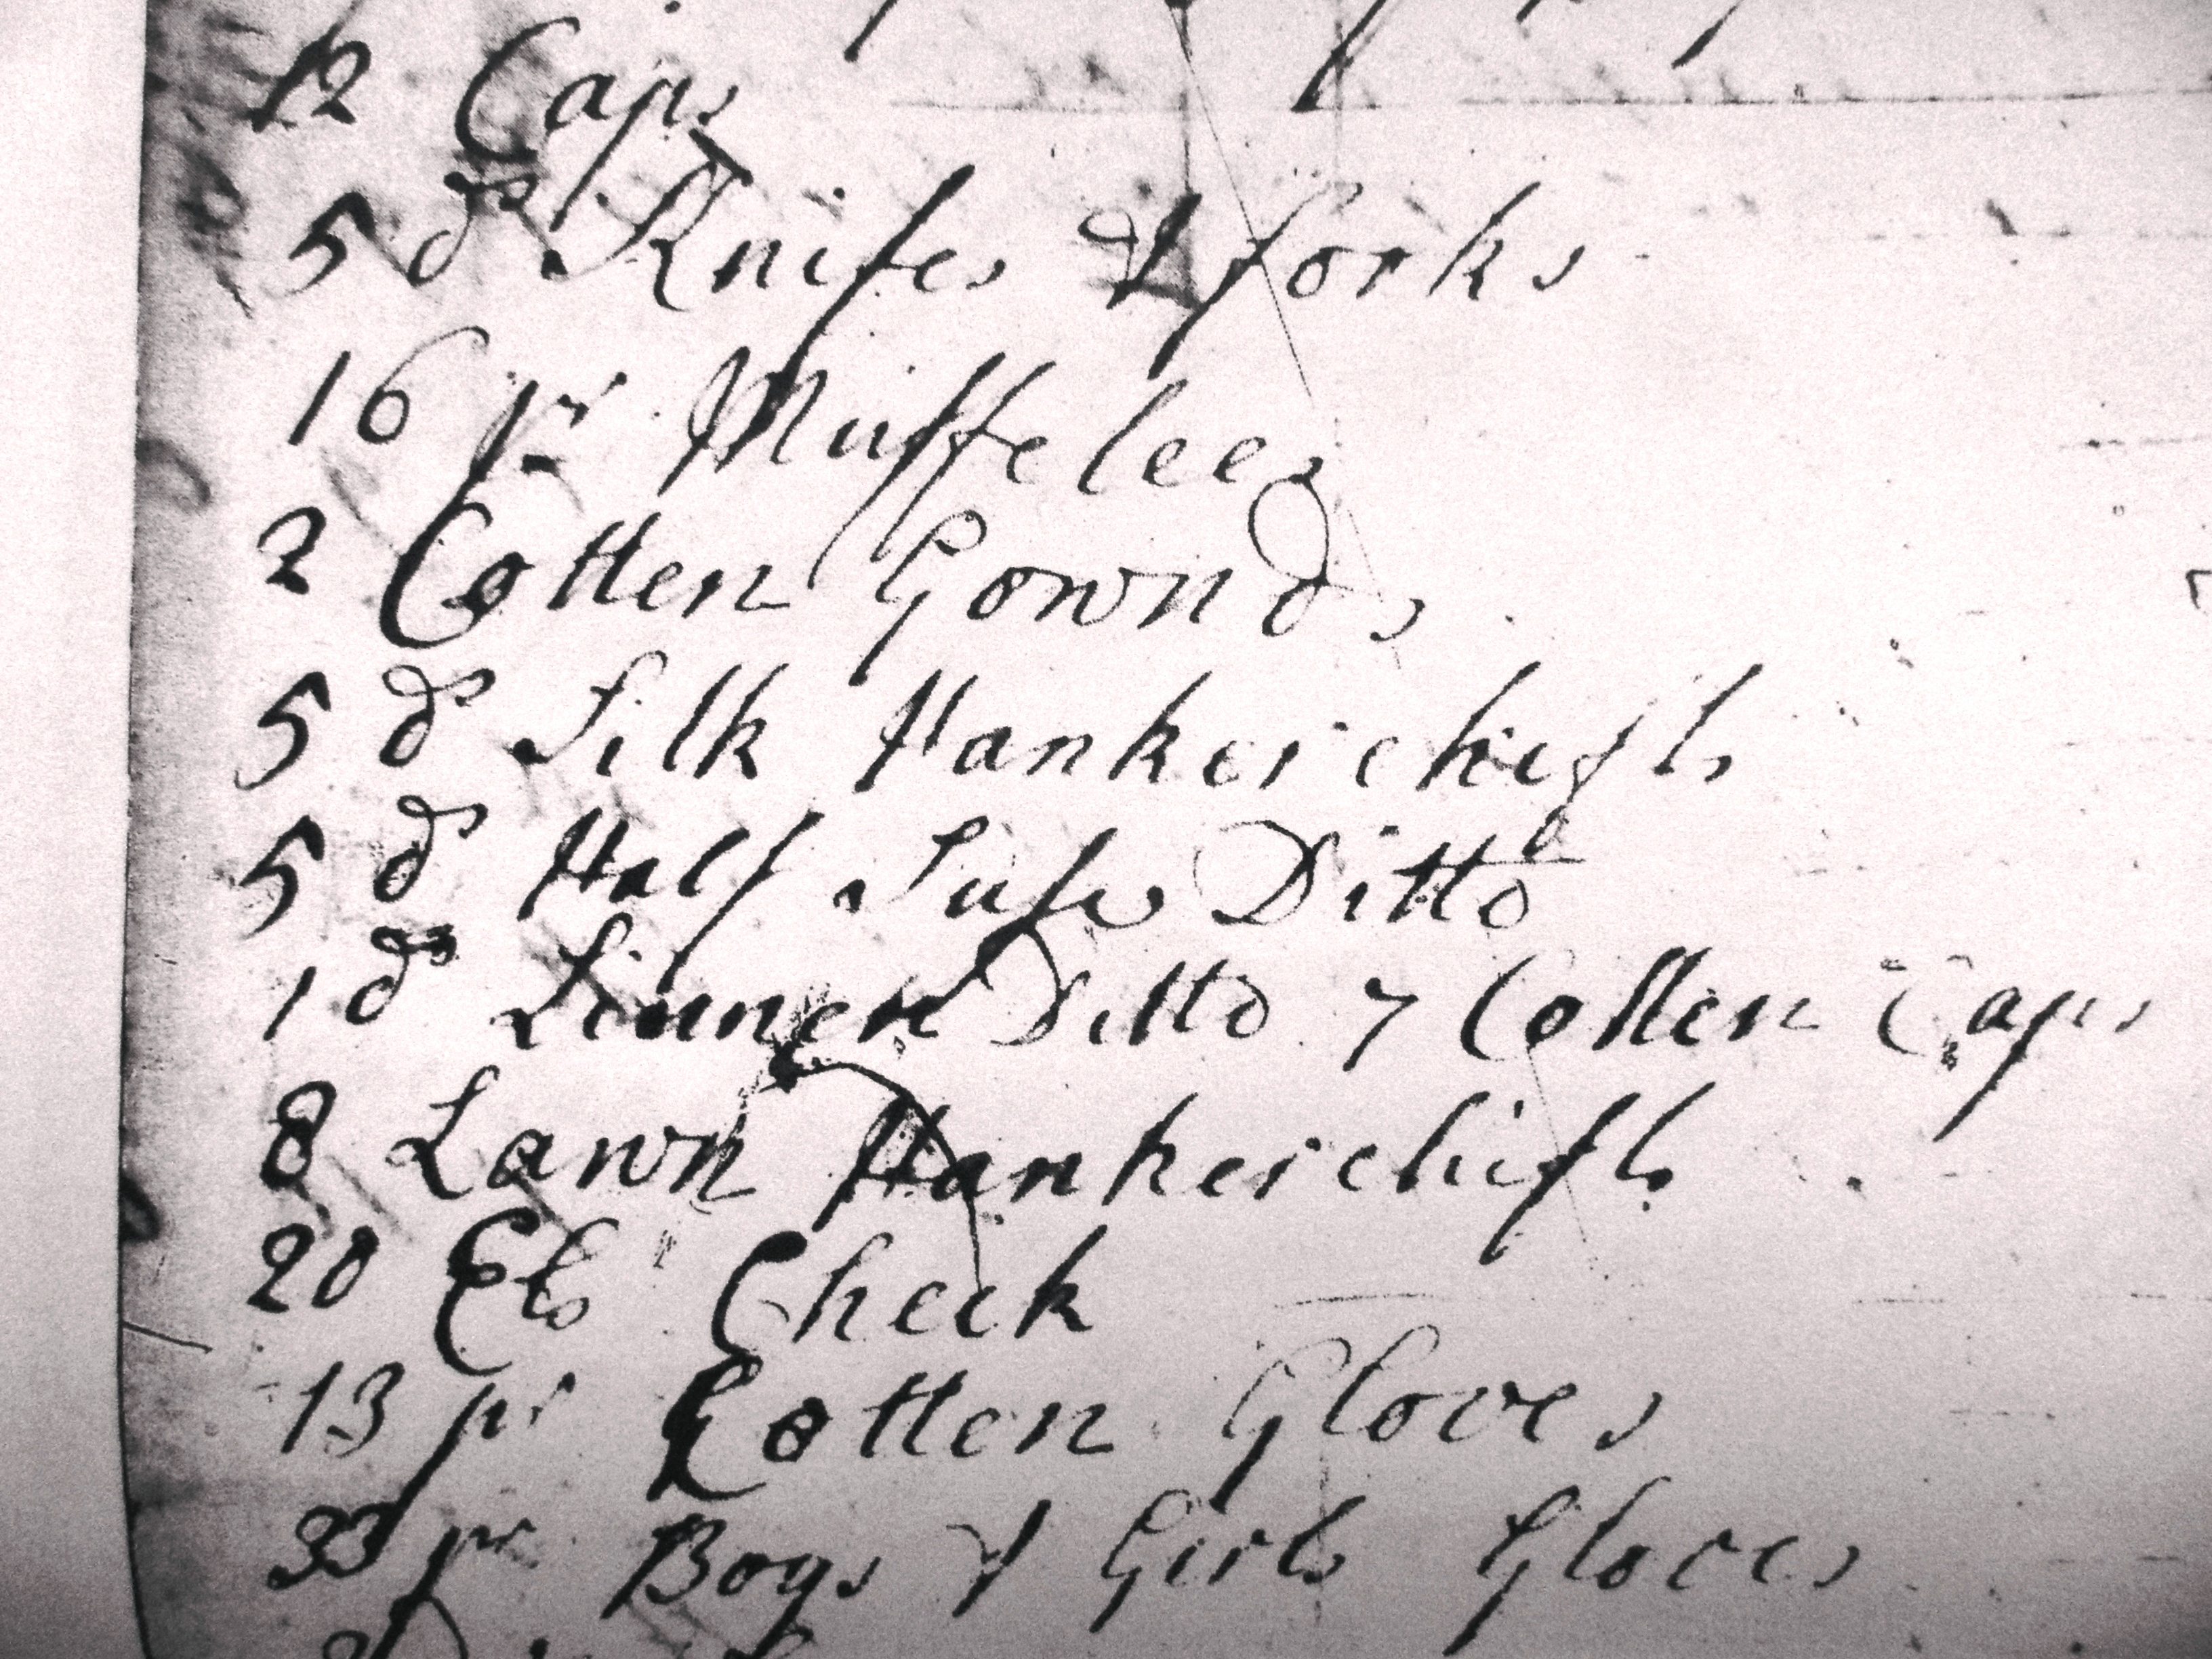 12 Caps
5 ds Knifes & forks
16 pr Muffelees
2 Cotten Gownds
5 ds Silk Hankerchiefs
5 ds Half Ditto
1 ds Linnen Ditto 7 Cotten Caps
8 Lawn Hankerchifs
20 Els Check
13 pr Cotten Gloves
33 pr Boys & Girls Gloves